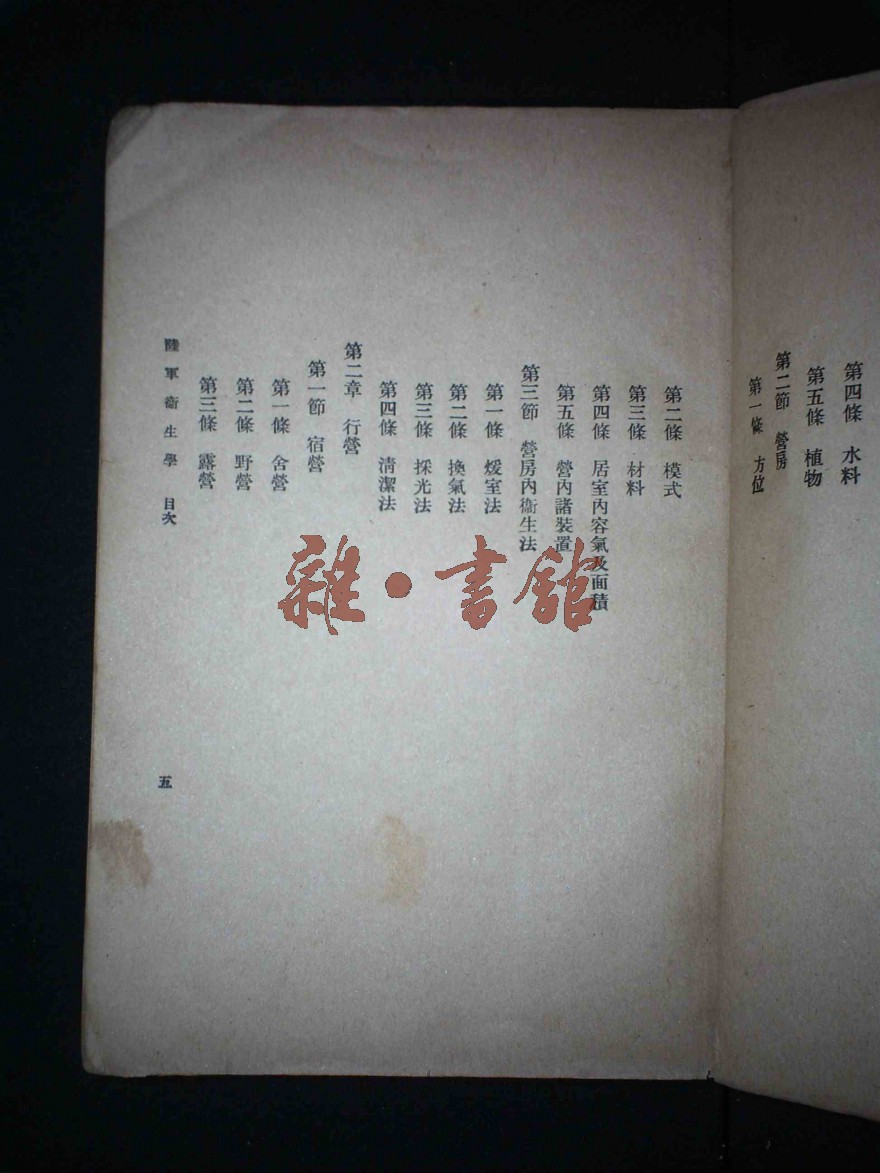 第四條 水料
第五條 植物
第二節 營房
第一條 方位
第二條 模式
第三條 材料
第四條 居室內容氣及面積
第五條 營內諸裝置
第三節 營房內衞生法
第一條 煖室法
第二條 換氣法
第三條 採光法
第四條 淸潔法
第二章 行營
第一節 宿營
第一條 舍營
第二條 野營
第三條 露營
陸軍衞生學 目次
五
雜·書館